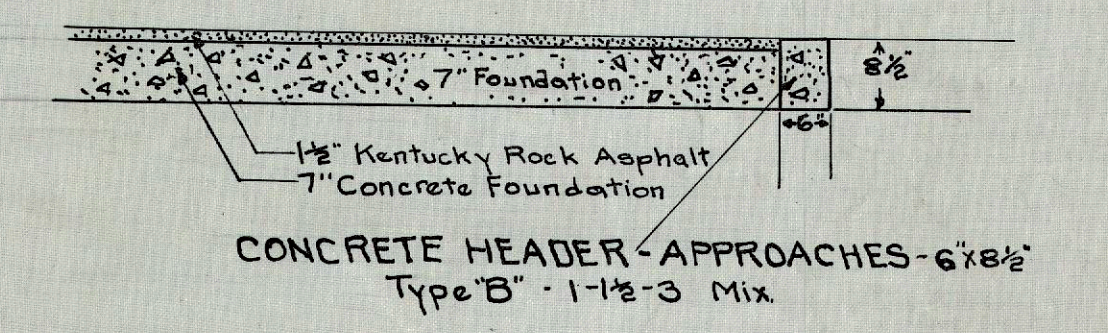 7" Foundation
8½"
6"
1½" Kentucky Rock Asphalt
7" Concrete Foundation
CONCRETE HEADER - APPROACHES - 6"x8½"
Type "B" - 1-1½-3 Mix.